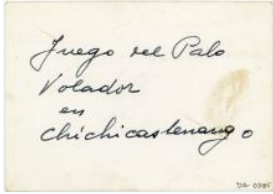 Juego del Palo
Volador
en
Chichicastenango